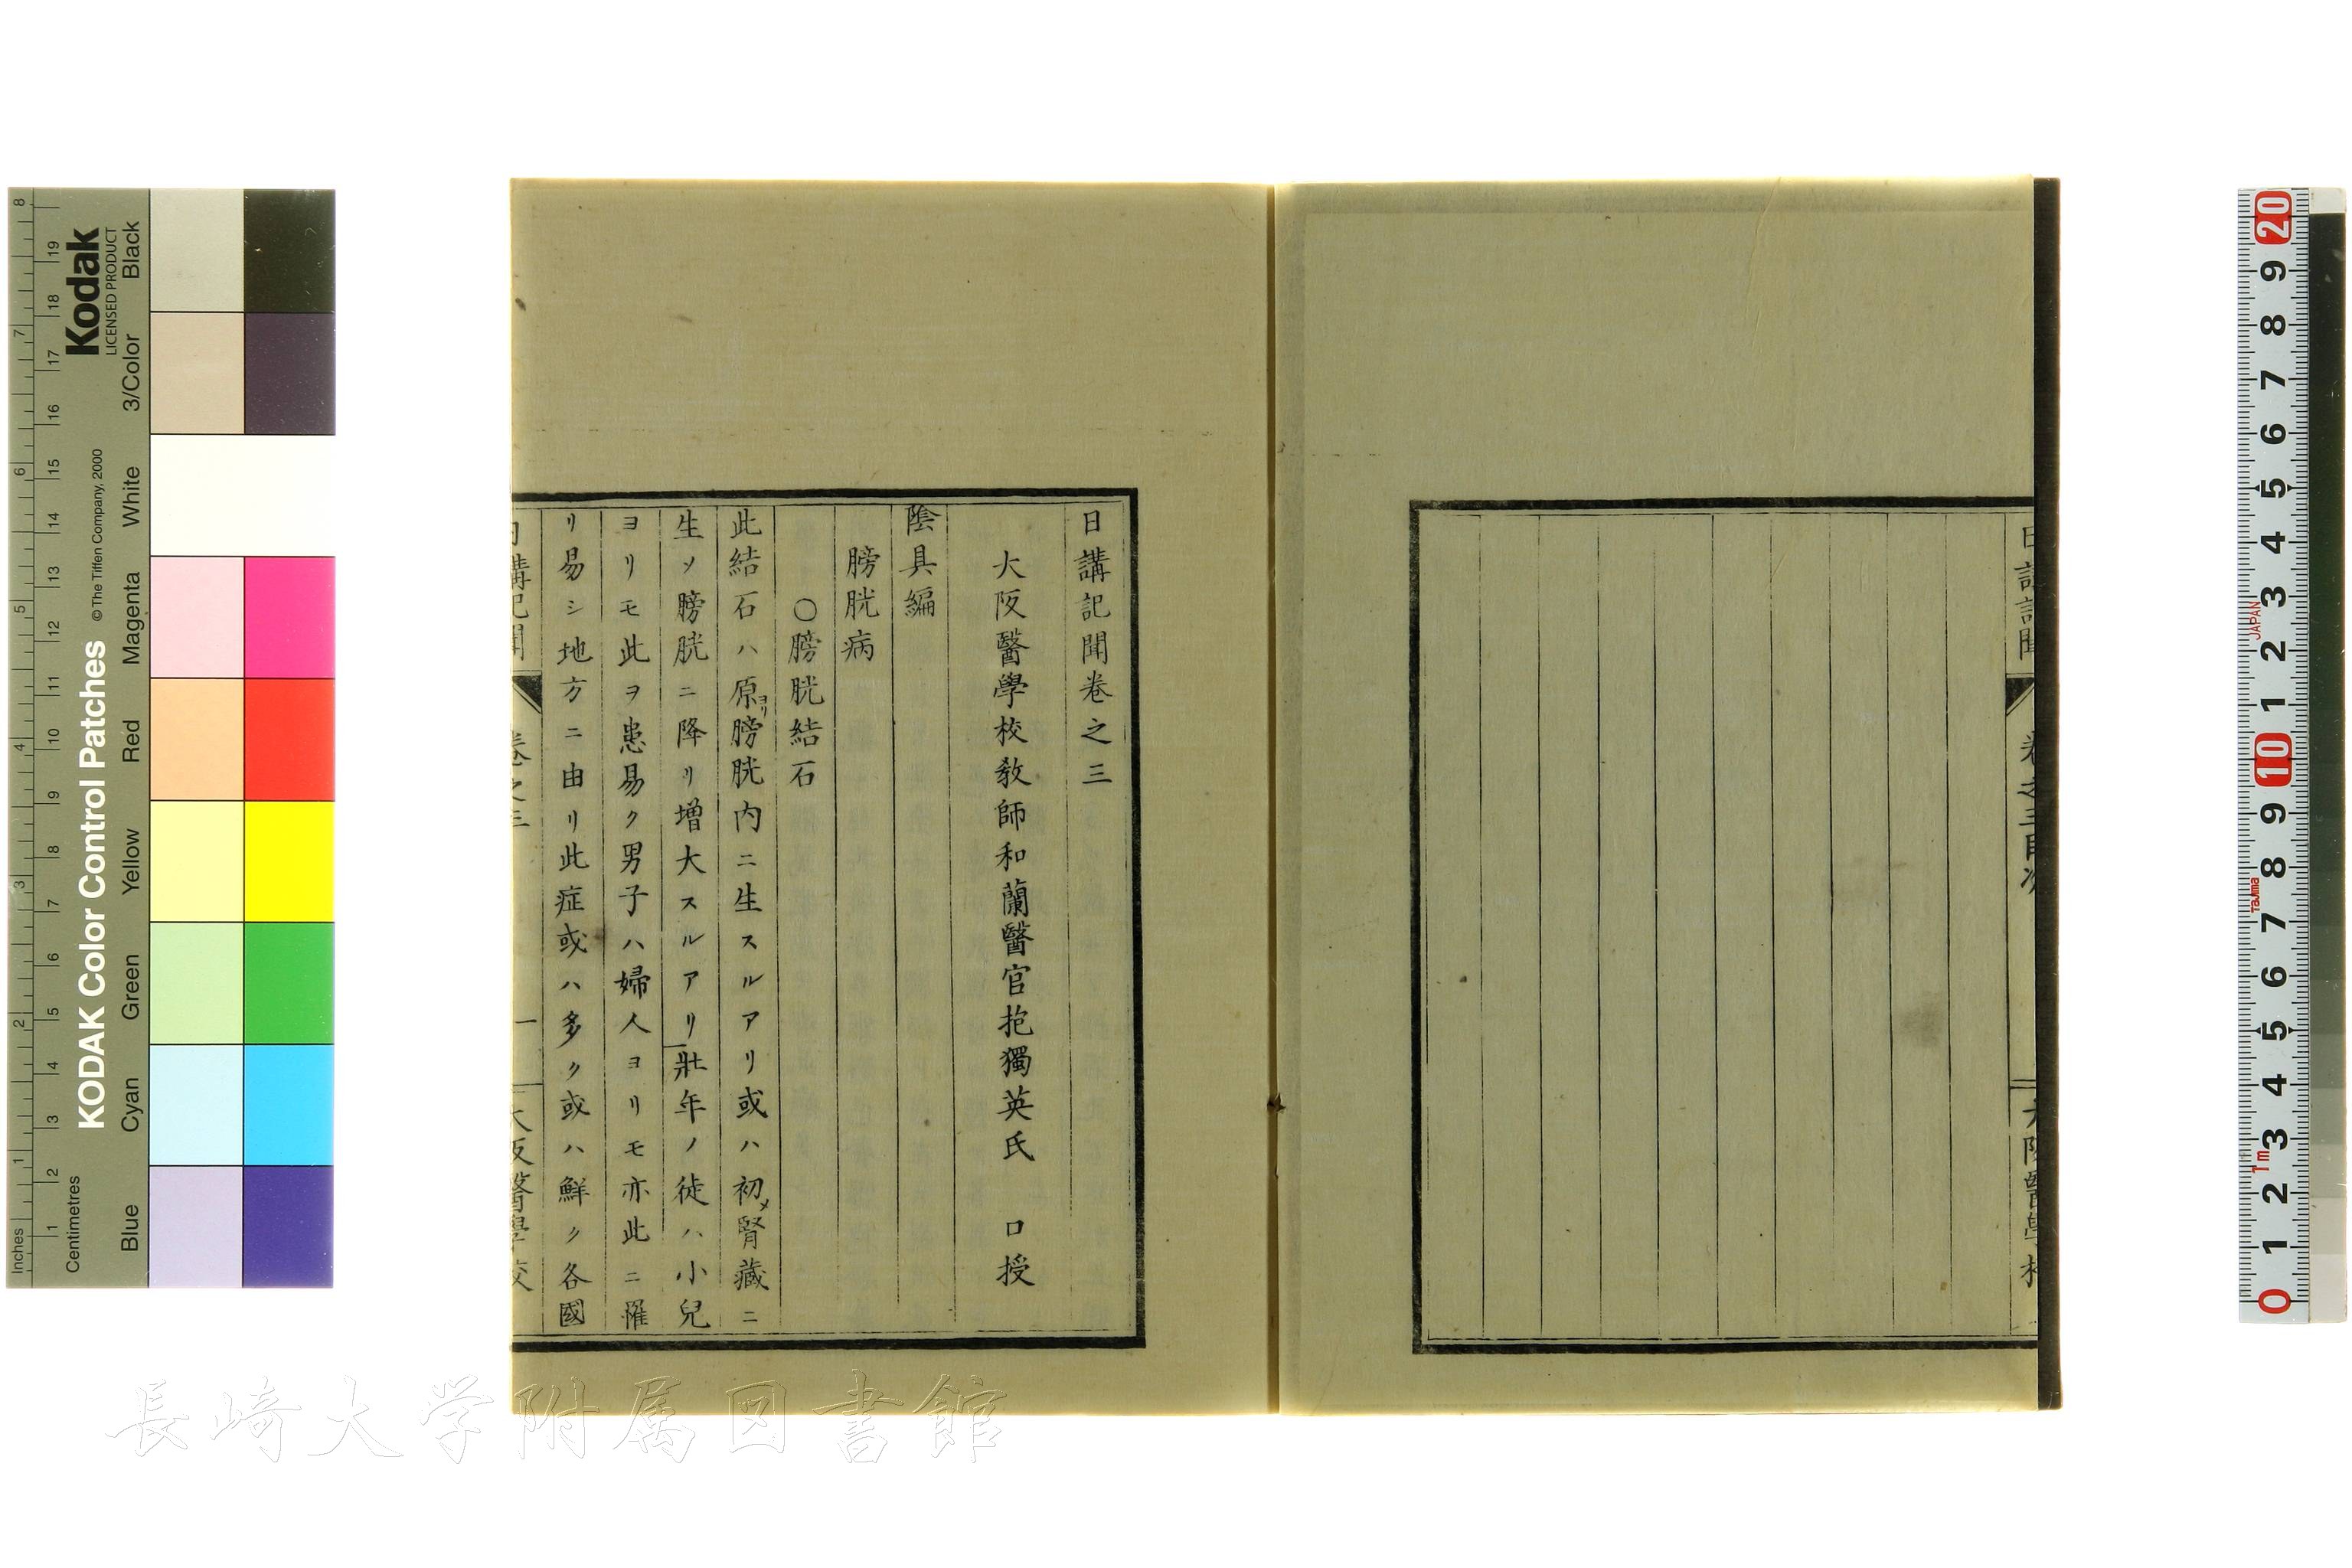 日講記聞卷之三
大阪醫學校教師和蘭醫官抱獨英氏　口授
陰具編
膀胱病
○膀胱結石
此結石ハ原ヨリ膀胱内ニ生スルアリ或ハ初メ腎藏ニ
生メ膀胱ニ降リ増大スルアリ壯年ノ徒ハ小兒
ヨリモ此ヲ患易ク男子ハ婦人ヨリモ亦此ニ罹
リ易シ地方ニ由リ此症或ハ多ク或ハ鮮ク各國
日講記聞　卷之三　一　大阪醫學校
日講記聞　卷之三目次　大阪醫學校
KODAK Color Control Patches
© The Tiffen Company, 2000
Kodak
LICENSED PRODUCT
Inches
1 2 3 4 5 6 7 8
Centimetres
1 2 3 4 5 6 7 8 9 10 11 12 13 14 15 16 17 18 19
Blue
Cyan
Green
Yellow
Red
Magenta
White
3/Color
Black
20 9 8 7 6 5 4 3 2 1 10 9 8 7 6 5 4 3 2 1 0
JAPAN
Tajima
1m
長崎大学附属図書館